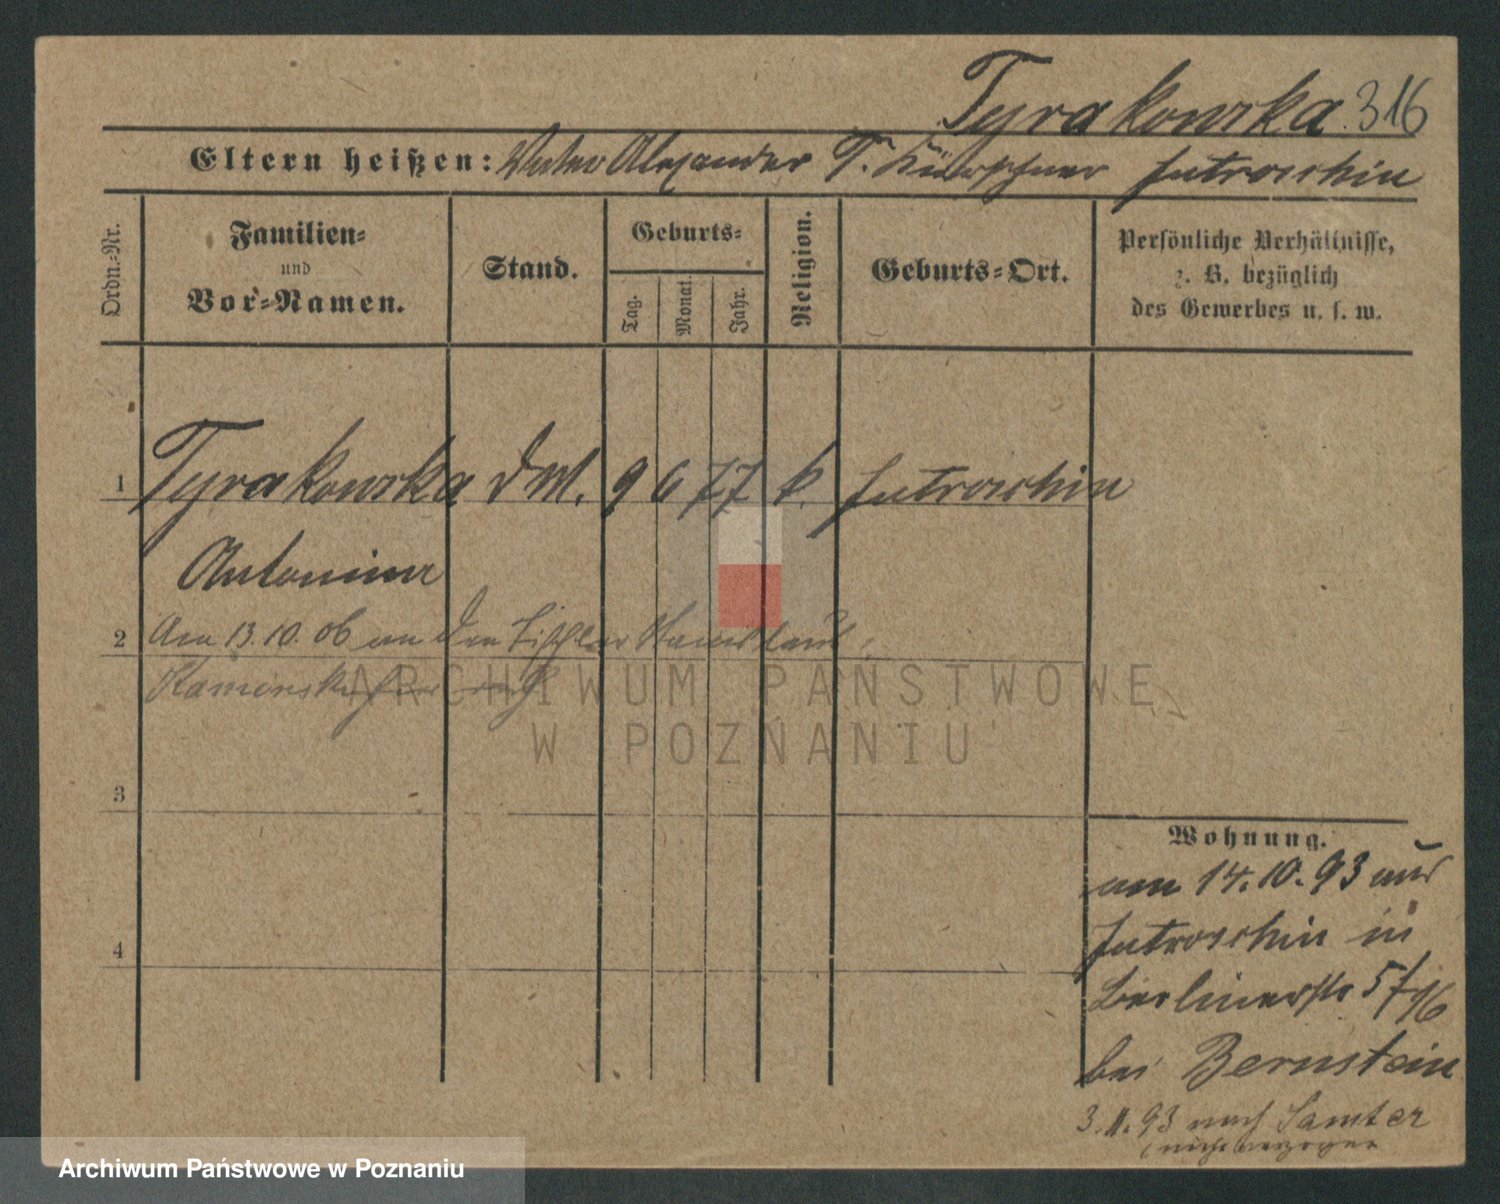 Tyrakowska. 316
Eltern heißen: Vater Alexander T. Kürschner Jutroschin
Ordn.-Nr.
Familien-
und
Vor-Namen.
Stand.
Geburts-
Tag.
Monat.
Jahr.
Religion.
Geburts-Ort.
Persönliche Verhältnisse,
z. B. bezüglich
des Gewerbes u. s. w.
1 Tyrakowska 9 6 77 k. Jutroschin
Antonina
2 Am 13.10.06 an den Tischler
Kaminski
ARCHIWUM PAŃSTWOWE
W POZNANIU
3
4
Wohnung.
am 14.10.93 aus
Jutroschin in
Berlinerstr 5
bei Bernstein
3.11.93 nach Samter
nicht verzogen
Archiwum Państwowe w Poznaniu